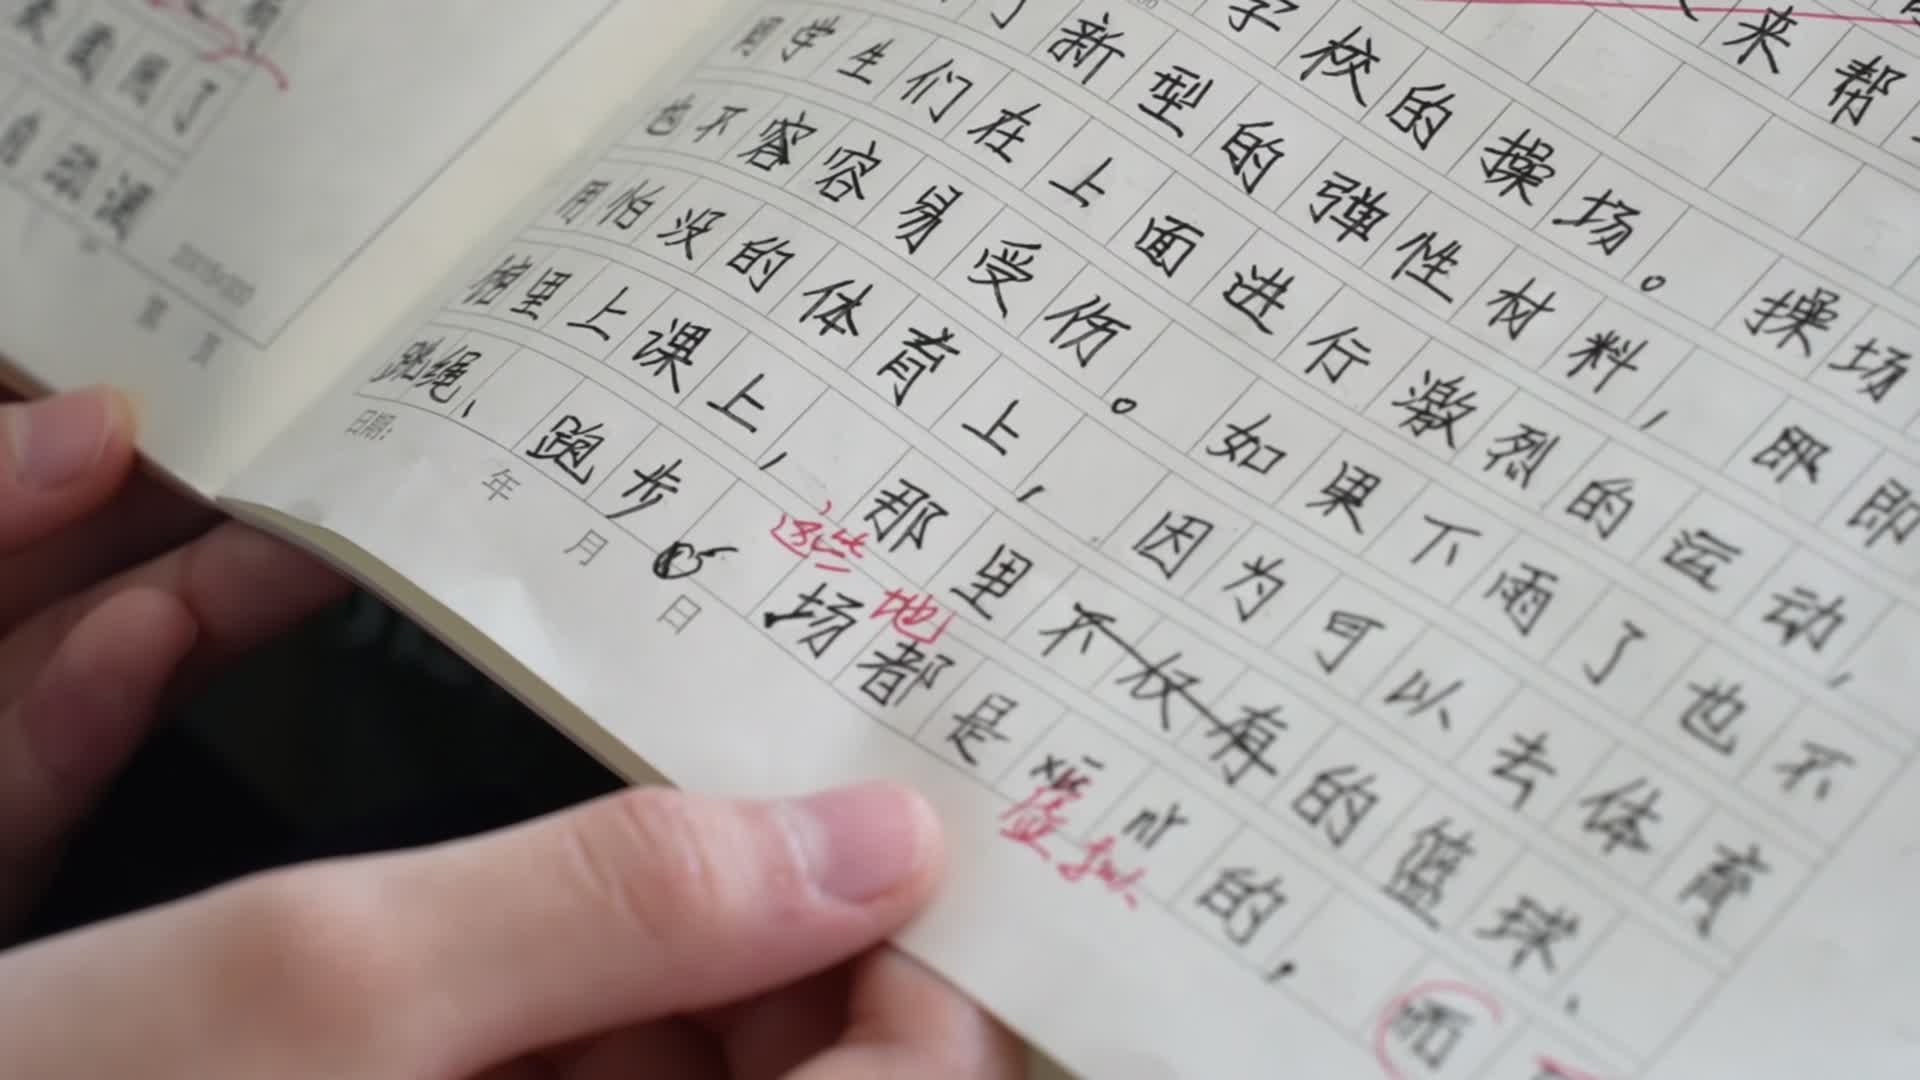 来帮
学校的操场。操场
了新型的弹性材料，即即
学生们在上面进行激烈的运动，
也不容容易受伤。如果下雨了也不
用怕没的体育上，因为可以去体育
馆里上课上，那里不状有的篮球、
这些 地
跳绳、跑步 场都是xū nǐ的，而
虚拟
日期： 年 月 日